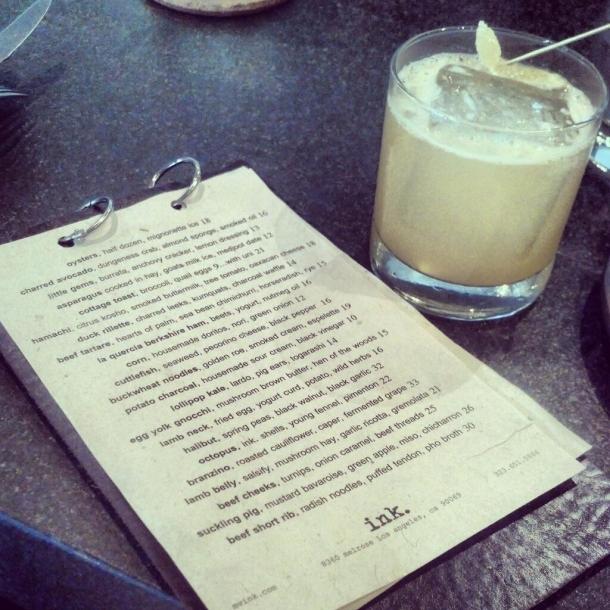 oysters, half dozen, mignonette ice 18
charred avocado, dungeness crab, almond sponge, smoked oil 16
little gems, burrata, anchovy cracker, lemon dressing 13
asparagus cooked in hay, goats milk ice, medjool date 12
cottage toast, broccoli, quail eggs 9.. with uni 21
hamachi, citrus kosho, smoked buttermilk, tree tomato, oaxacan cheese 18
duck rillette, charred seeds, kumquats, charcoal waffle 14
beef tartare, hearts of palm, sea bean chimichuri, horseradish, rye 15
la quercia berkshire ham, beets, yogurt, nutmeg oil 16
corn, housemade doritos, nori, green onion 12
cuttlefish, seaweed, pecorino cheese, black pepper 16
buckwheat noodles, golden roe, smoked cream, espelette 19
potato charcoal, housemade sour cream, black vinegar 10
lollipop kale, lardo, pig ears, togarashi 14
egg yolk gnocchi, mushroom brown butter, hen of the woods 15
lamb neck, fried egg, yogurt curd, potato, wild herbs 16
halibut, spring peas, black walnut, black garlic 32
octopus, ink. shells, young fennel, pimenton 22
branzino, roasted cauliflower, caper, fermented grape 33
lamb belly, salsify, mushroom hay, garlic ricotta, gremolata 21
beef cheeks, turnips, onion caramel, beef threads 25
suckling pig, mustard bavaroise, green apple, miso, chicharron 26
beef short rib, radish noodles, puffed tendon, pho broth 30
ink.
mvink.com
8360 melrose los angeles, ca 90069